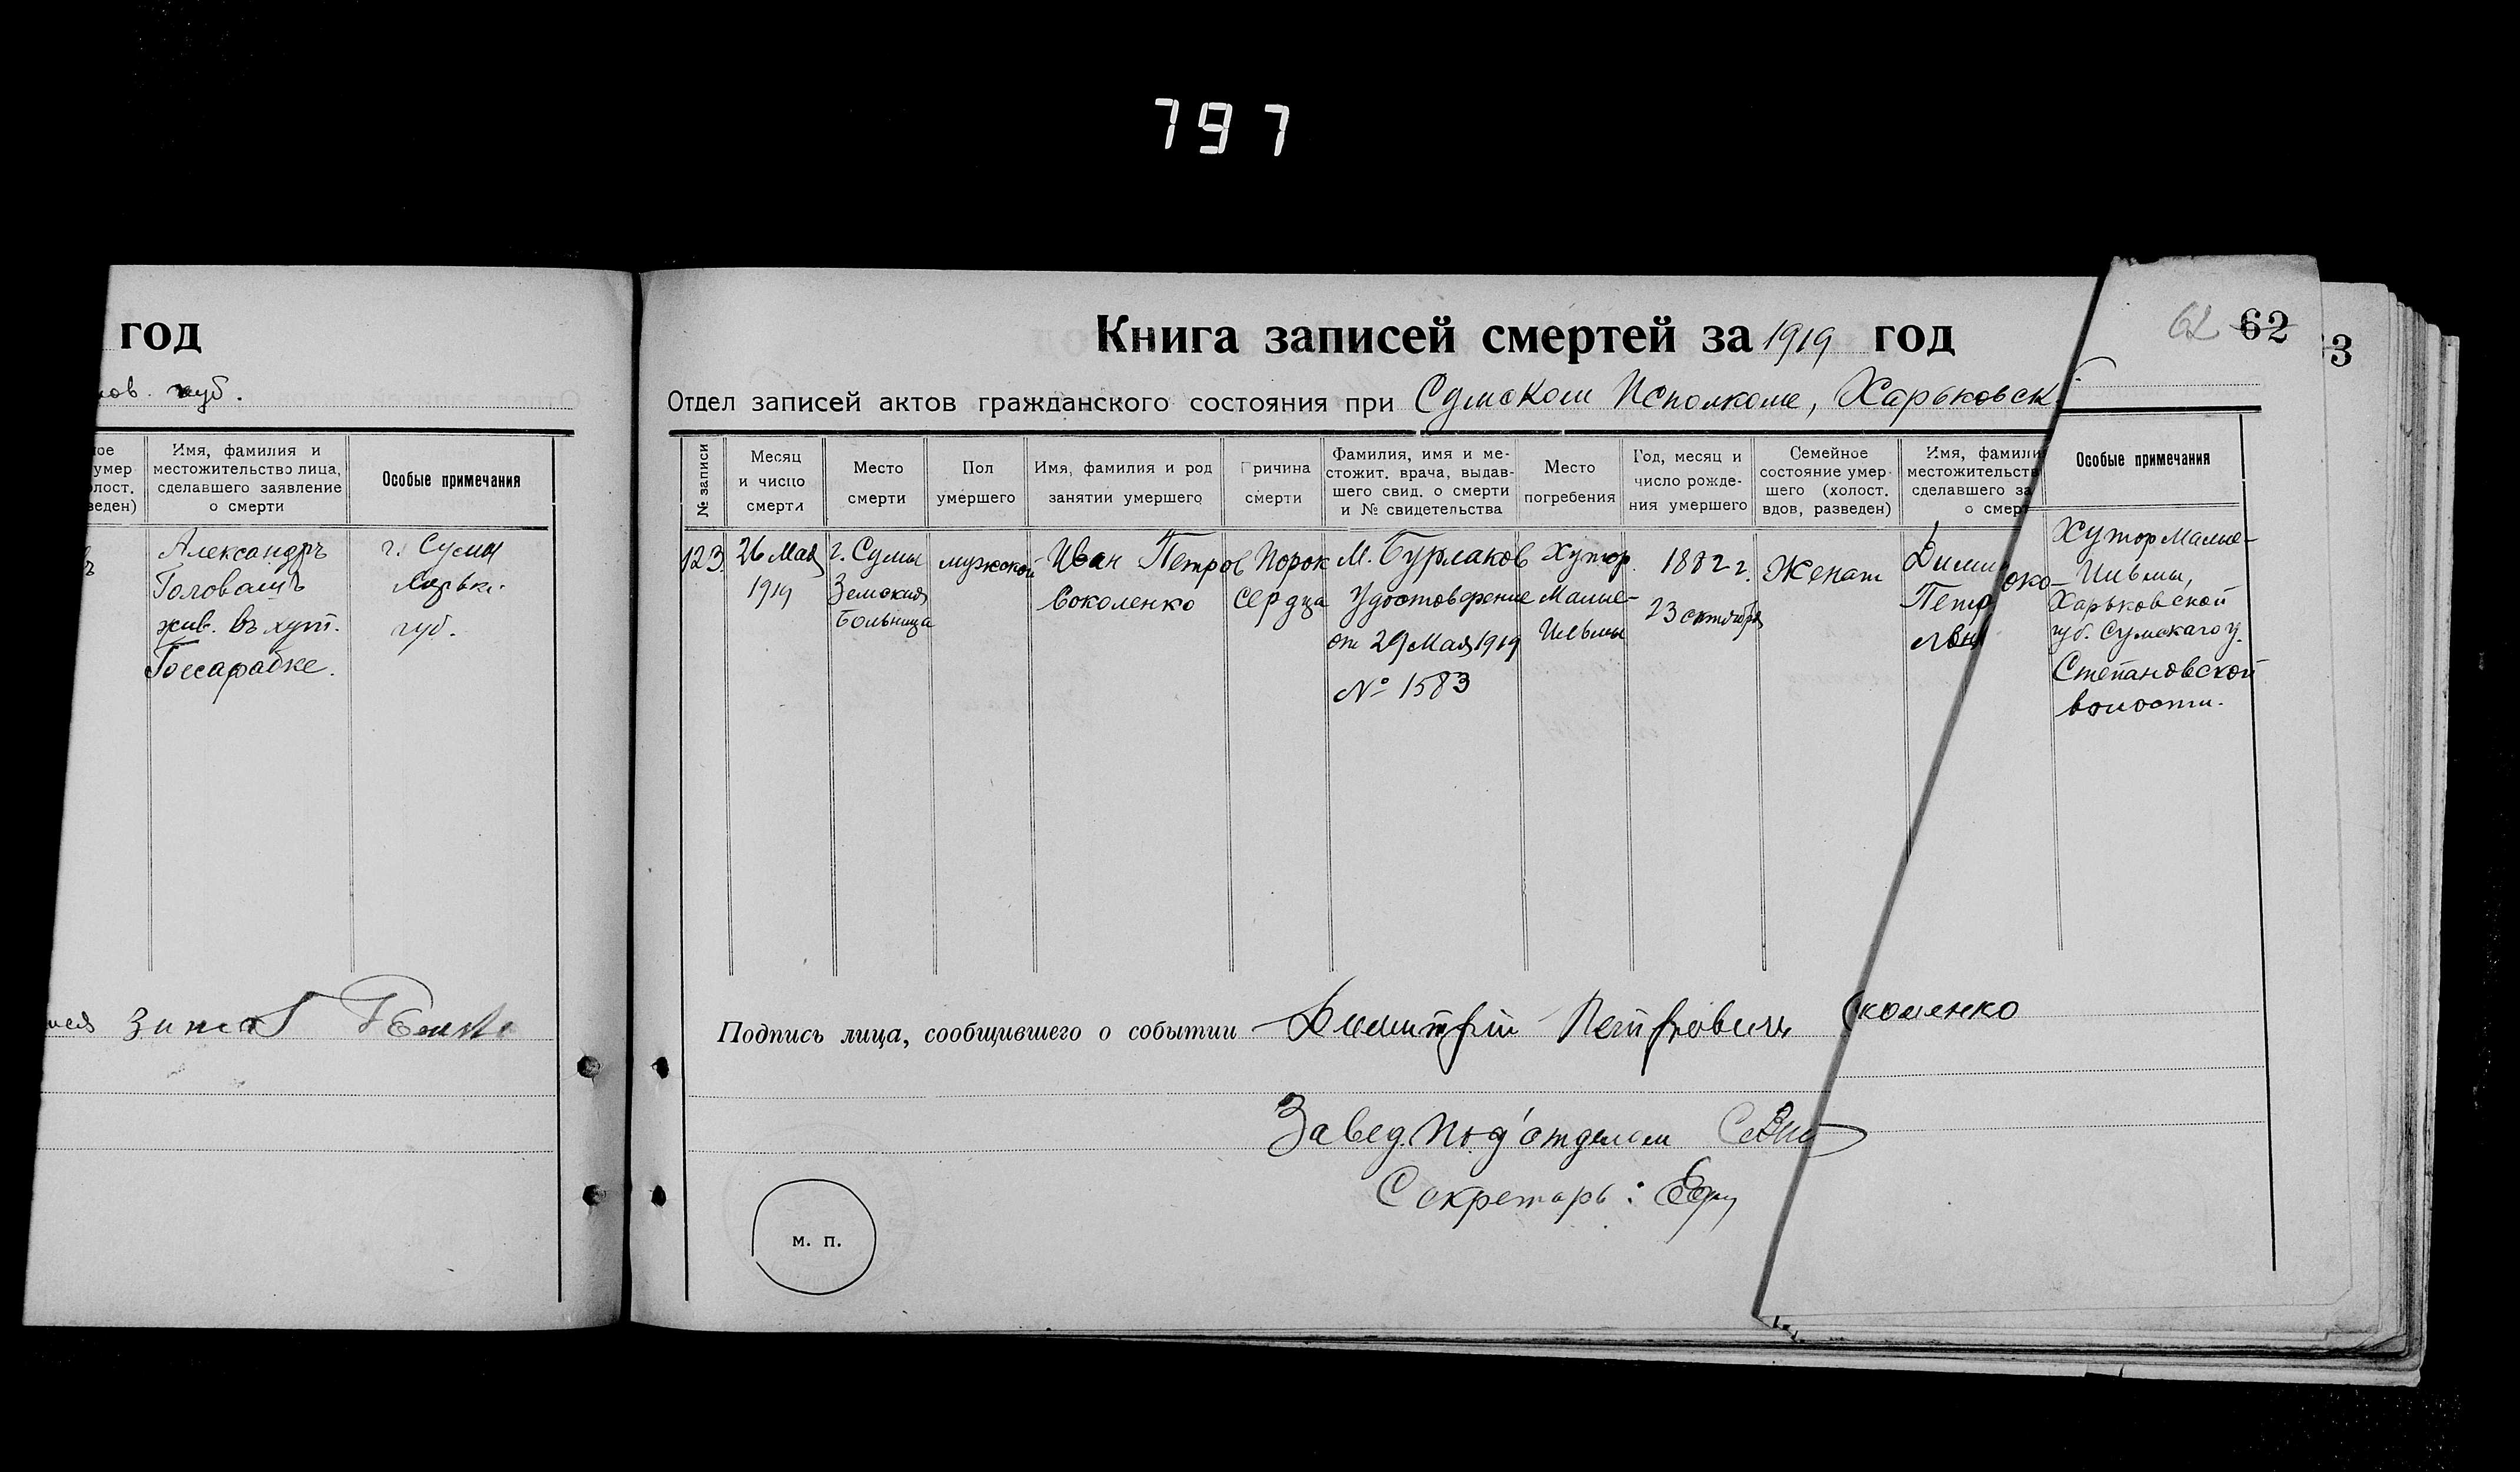 797
год
губ.
Имя, фамилия и
местожительство лица,
сделавшего заявление
о смерти
Особые примечания
умер
олост.
веден)
Александръ
Головашъ
жив. въ хут.
г. Сумы
Харьк.
губ.
Книга записей смертей за 1919 год
62 62
3
Отдел записей актов гражданского состояния при Сумском Исполкоме, Харьковск.
№ записи
Месяц
и число
смерти
Место
смерти
Пол
умершего
Имя, фамилия и род
занятии умершего
Причина
смерти
Фамилия, имя и ме-
стожит. врача, выдав-
шего свид. о смерти
и № свидетельства
Место
погребения
Год, месяц и
число рожде-
ния умершего
Семейное
состояние умер-
шего (холост.
вдов, разведен)
Имя, фамили
местожительств
сделавшего за
о смерт
Особые примечания
123.
26 Мая
1919
г. Сумы
Земская
Больница
мужской
Иван Петров
Соколенко
Порок
сердца
М. Бурлаков
Удостоверение
от 29 Мая 1919
№ 1583
Хутор.
Малые-
Ильмы
1882 г.
23 октября
Женат
Дими
Петр
око-
Хутор Малые-
Ильмы,
Харьковской
губ. Сумскаго у.
Степановской
волости.
Подпись лица, сообщившего о событии Димитрий Петрович Скоменко
Завед. Под'отделом
Секретарь:
м. п.